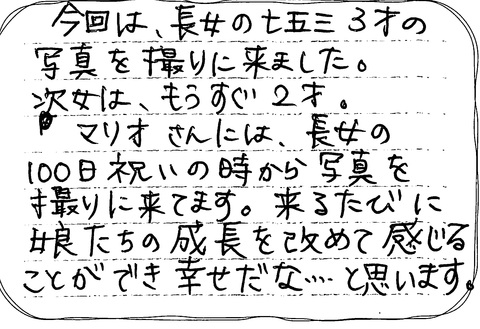 今回は、長女の七五三3才の
写真を撮りに来ました。
次女は、もうすぐ2才。
マリオさんには、長女の
100日祝いの時から写真を
撮りに来てます。来るたびに
娘たちの成長を改めて感じる
ことができ幸せだな…と思います。